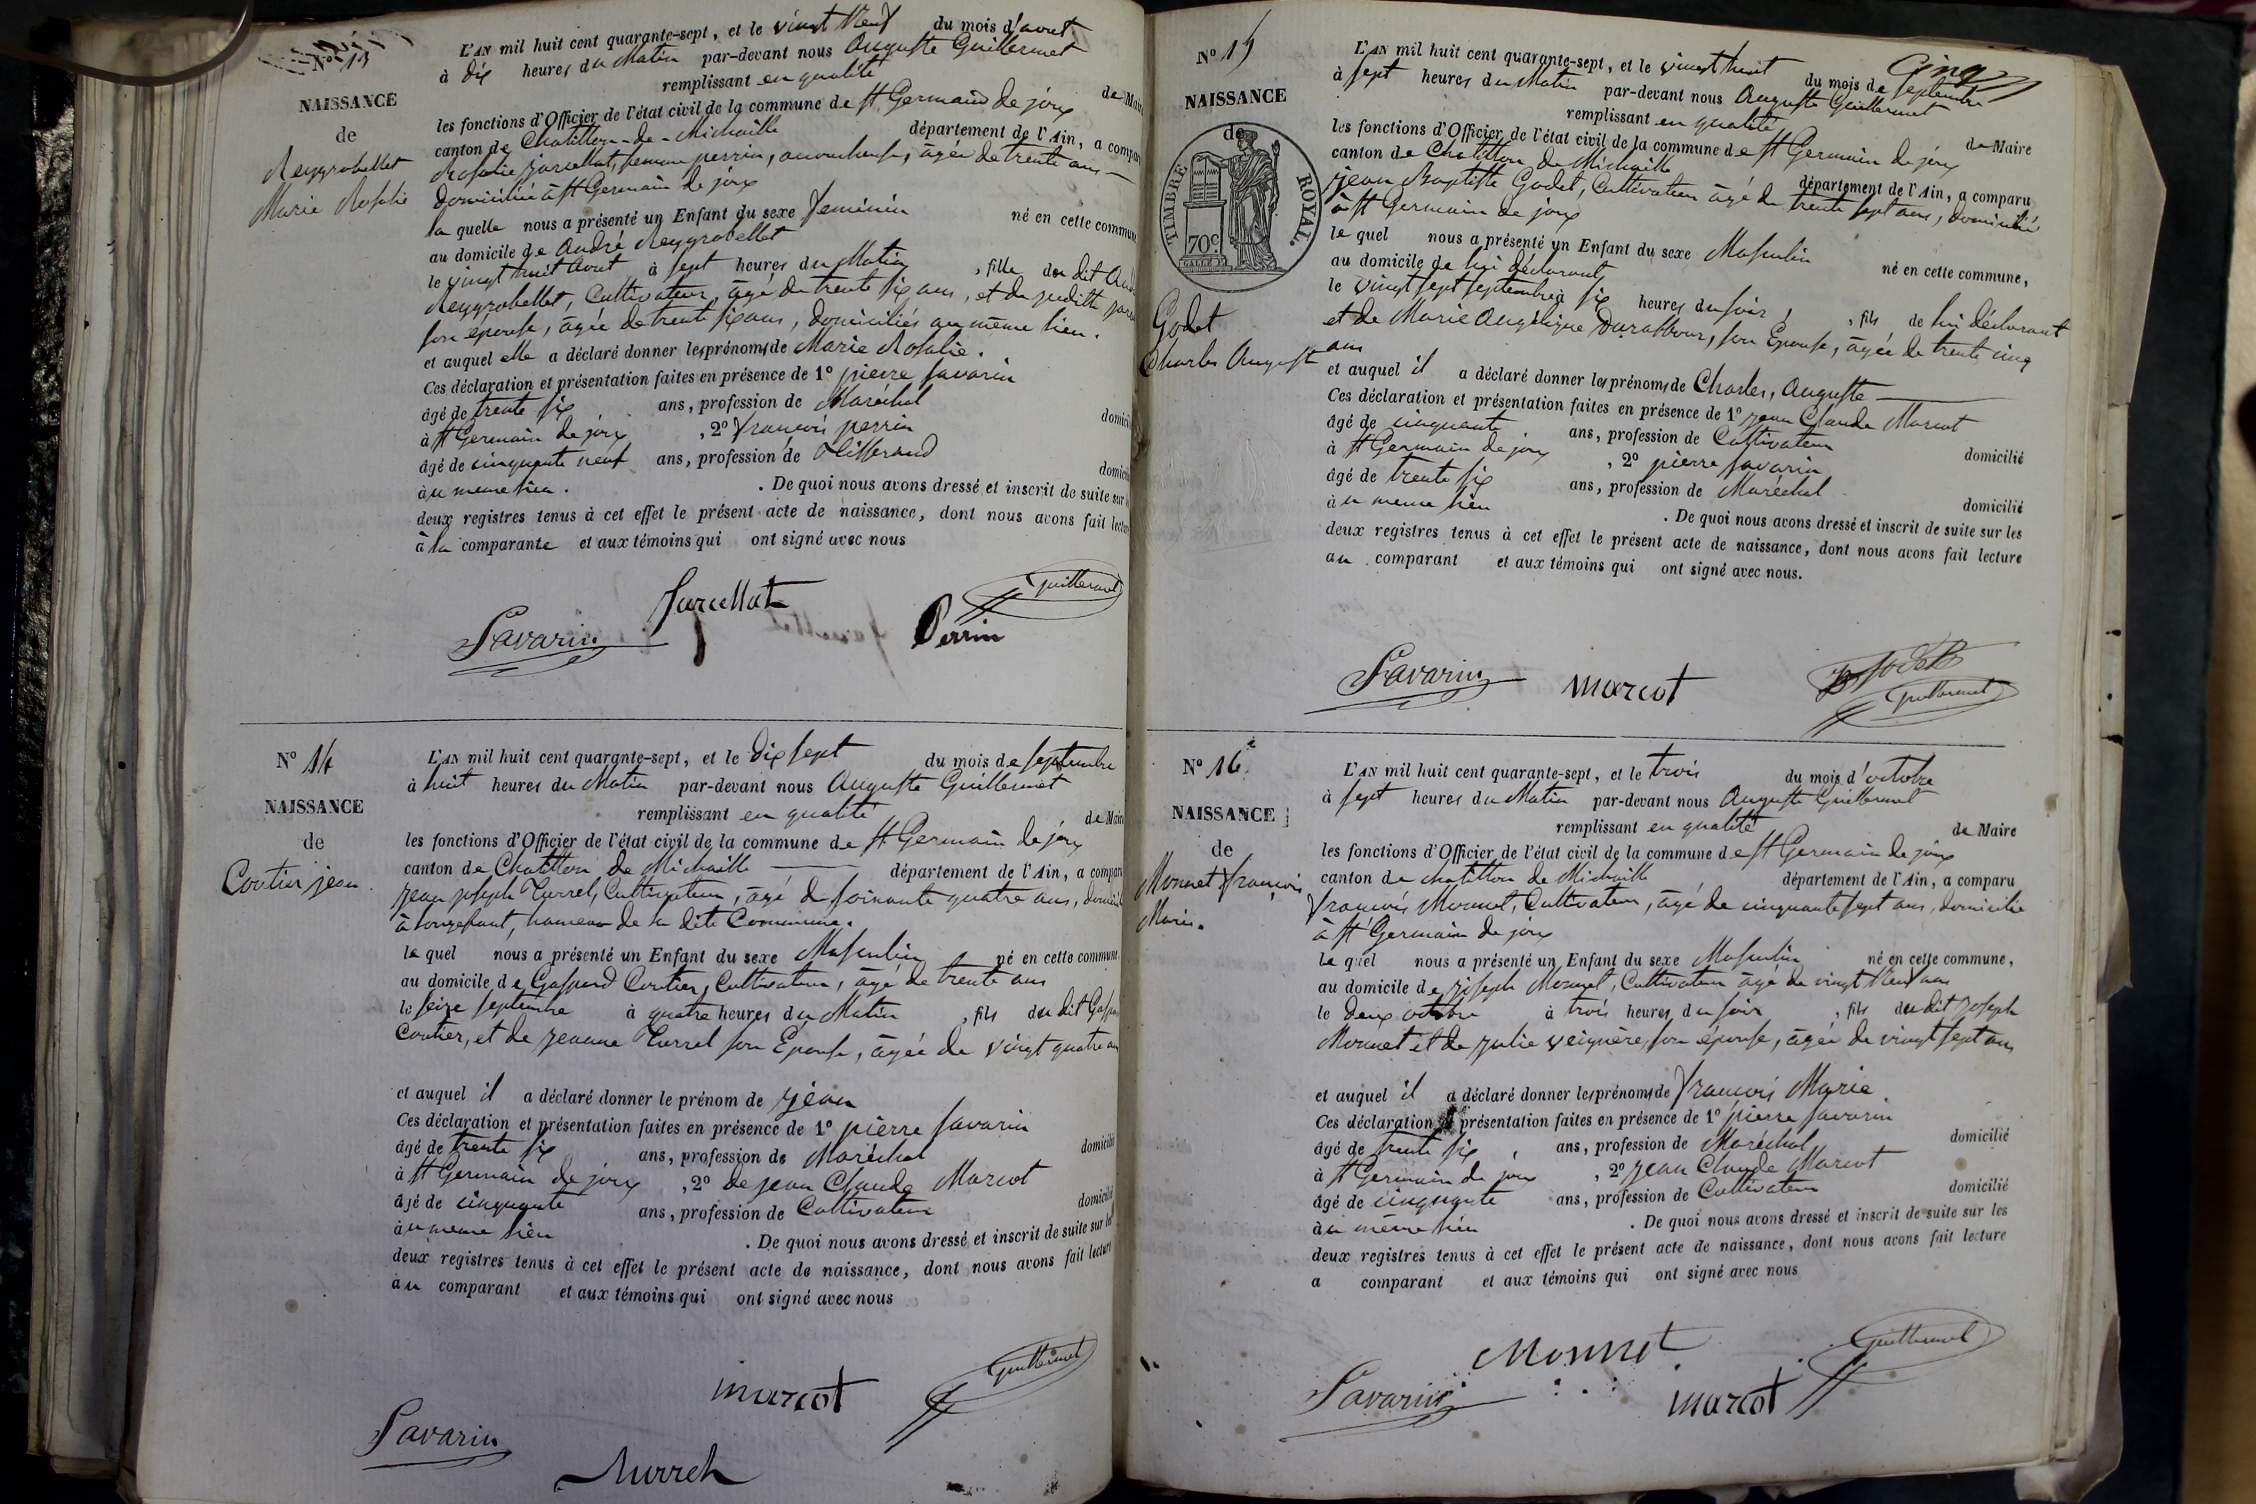 N° 13
NAISSANCE
de
Reygrobellet
Marie Rosalie
L'AN mil huit cent quarante-sept, et le vingt Neuf du mois d'aout
à dix heures du Matin par-devant nous Auguste Guillermet
remplissant en qualité de Maire
les fonctions d'Officier de l'état civil de la commune de St Germain de joux
canton de Chatillon-de-Michaille département de l'Ain, a compar
Rosalie jarcellat, femme perrin, accoucheuse, âgée de trente ans
domiciliée à St Germain de joux
la quelle nous a présenté un Enfant du sexe feminin né en cette commune
au domicile de André Reygrobellet
le vingt huit Aout à sept heures du Matin, fille du dit And
Reygrobellet, Cultivateur, âgé de trente six ans, et de judith
son épouse, âgée de trente six ans, domiciliés au même lieu.
et auquel elle a déclaré donner les prénoms de Marie Rosalie.
Ces déclaration et présentation faites en présence de 1° pierre Savarin
âgé de trente six ans, profession de Maréchal domicil
à St Germain de joux, 2° françois perrin
âgé de cinquante neuf ans, profession de Tisserand domici
à u meme lieu. De quoi nous avons dressé et inscrit de suite sur
deux registres tenus à cet effet le présent acte de naissance, dont nous avons fait lectur
à la comparante et aux témoins qui ont signé avec nous
Guillermet
Jarcellat
Savarin
Perrin
N° 14
NAISSANCE
de
Coutier jean
L'AN mil huit cent quarante-sept, et le dix sept du mois de septembre
à huit heures du Matin par-devant nous Auguste Guillermet
remplissant en qualité de Maire
les fonctions d'Officier de l'état civil de la commune de St Germain de joux
canton de Chatillon de Michaille département de l'Ain, a compar
jean joseph Turrel, Cultivateur, âgé de soixante quatre ans, domicil
à longefant, hameau de la dite Commune.
le quel nous a présenté un Enfant du sexe Masculin né en cette commune
au domicile de Gaspard Coutier, Cultivateur, âgé de trente ans
le seize septembre à quatre heures du Matin, fils du dit Gaspar
Coutier, et de jeanne Turrel son Epouse, âgée de vingt quatre an
et auquel il a déclaré donner le prénom de jean
Ces déclaration et présentation faites en présence de 1° pierre Savarin
âgé de trente six ans, profession de Maréchal domicilié
à St Germain de joux, 2° de jean Claude Marcot
âgé de cinquante ans, profession de Cultivateur domicilié
à u meme lieu. De quoi nous avons dressé et inscrit de suite sur les
deux registres tenus à cet effet le présent acte de naissance, dont nous avons fait lecture
au comparant et aux témoins qui ont signé avec nous
Guillermet
marcot
Savarin
N° 15
NAISSANCE
de
TIMBRE ROYAL.
70c
Godet
Charles August
Cinq
L'AN mil huit cent quarante-sept, et le vingt huit du mois de septembre
à sept heures du Matin par-devant nous Auguste Guillermet
remplissant en qualité de Maire
les fonctions d'Officier de l'état civil de la commune de St Germain de joux
canton de Chatillon de Michaille département de l'Ain, a comparu
jean Baptiste Godet, Cultivateur âgé de trente sept ans, domicilié
à St Germain de joux
le quel nous a présenté un Enfant du sexe Masculin né en cette commune,
au domicile de lui déclarant
le vingt sept septembre à six heures du soir, fils de lui déclarant
et de Marie Angélique Duraffour, son Epouse, âgée de trente cinq
ans
et auquel il a déclaré donner les prénoms de Charles, Auguste
Ces déclaration et présentation faites en présence de 1° jean Claude Marcot
âgé de cinquante ans, profession de Cultivateur domicilié
à St Germain de joux, 2° pierre Savarin
âgé de trente six ans, profession de Maréchal domicilié
à u meme lieu. De quoi nous avons dressé et inscrit de suite sur les
deux registres tenus à cet effet le présent acte de naissance, dont nous avons fait lecture
au comparant et aux témoins qui ont signé avec nous.
Savarin
marcot
Guillermet
N° 16
NAISSANCE
de
Monnet françois
Marie.
L'AN mil huit cent quarante-sept, et le trois du mois d'octobre
à sept heures du Matin par-devant nous Auguste Guillermet
remplissant en qualité de Maire
les fonctions d'Officier de l'état civil de la commune de St Germain de joux
canton de Chatillon de Michaille département de l'Ain, a comparu
françois Monnet, Cultivateur, âgé de cinquante sept ans, domicilié
à St Germain de joux
le quel nous a présenté un Enfant du sexe Masculin né en cette commune,
au domicile de joseph Monnet, Cultivateur âgé de vingt Neuf ans
le deux octobre à trois heures du soir, fils du dit joseph
Monnet et de julie veignère, son épouse, âgée de vingt sept ans
et auquel il a déclaré donner les prénoms de françois Marie
Ces déclaration et présentation faites en présence de 1° pierre Savarin
âgé de trente six ans, profession de Maréchal domicilié
à St Germain de joux, 2° jean Claude Marcot
âgé de cinquante ans, profession de Cultivateur domicilié
à u même lieu. De quoi nous avons dressé et inscrit de suite sur les
deux registres tenus à cet effet le présent acte de naissance, dont nous avons fait lecture
a comparant et aux témoins qui ont signé avec nous
Monnet
Guillermet
Savarin
marcot